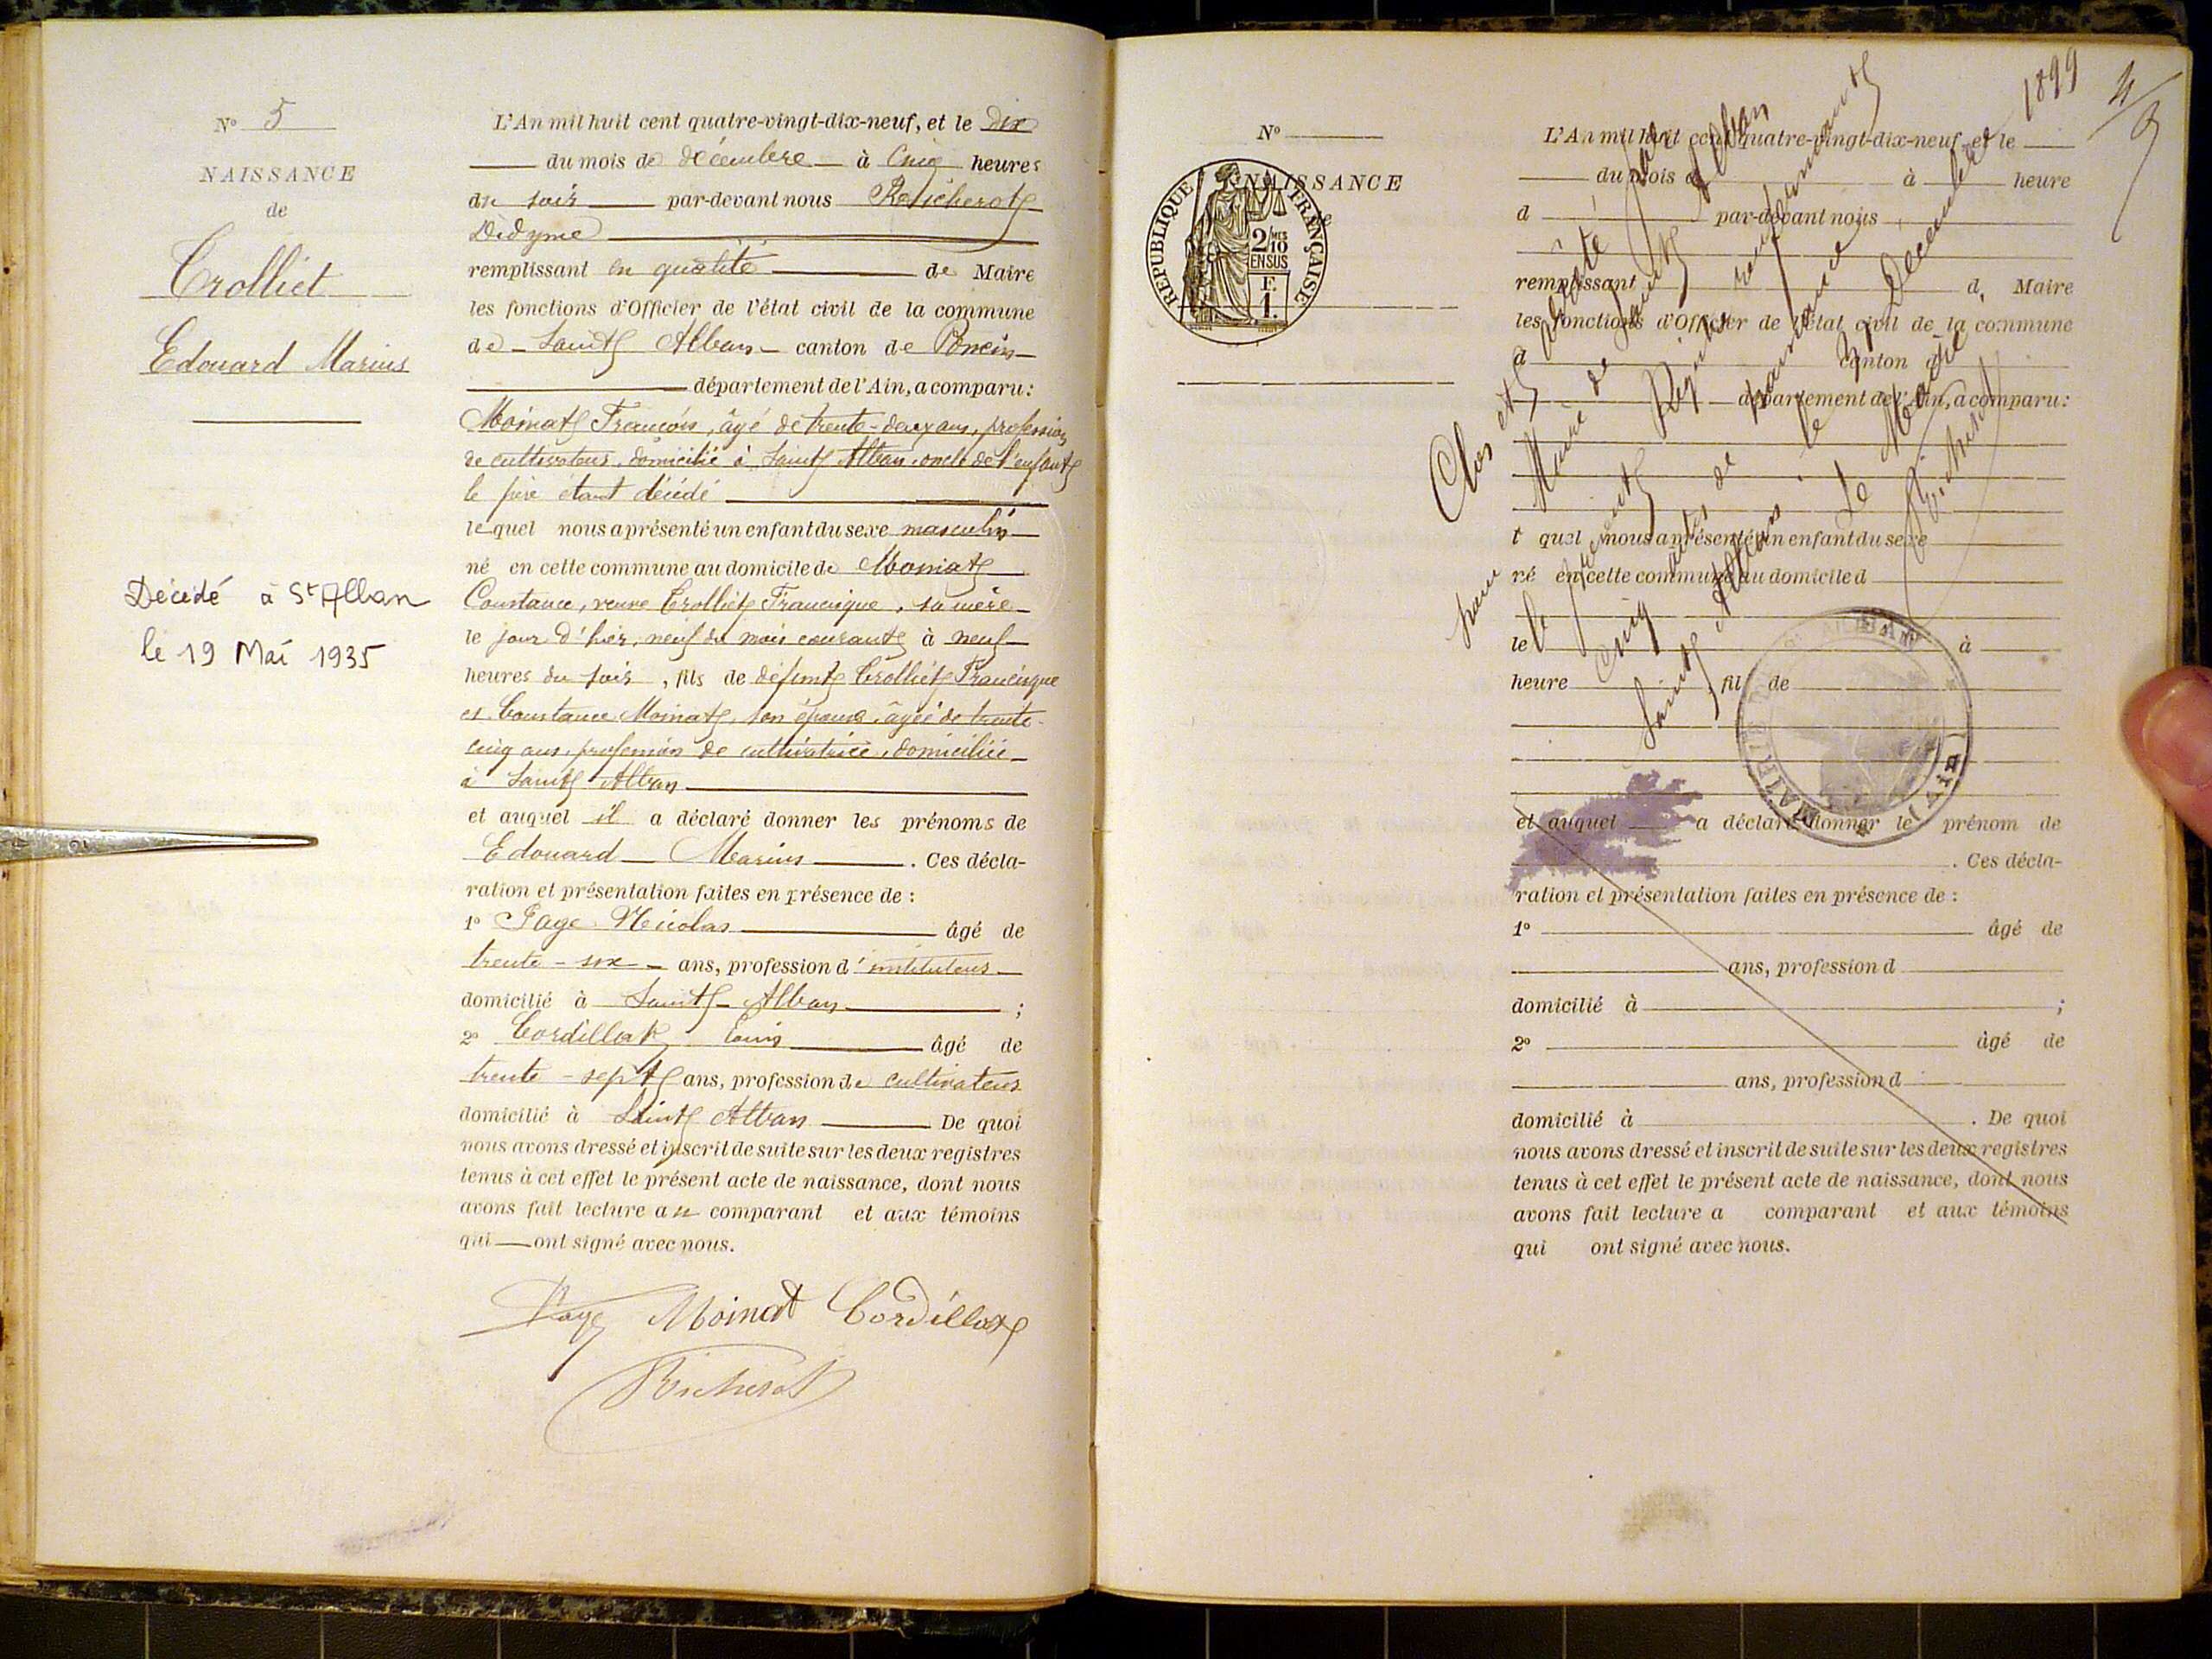 N° 5
NAISSANCE
de
Trolliet
Edouard Marius
Décédé à St Alban
le 19 Mai 1935
L'An mil huit cent quatre-vingt-dix-neuf, et le dix
du mois de décembre à cinq heures
du soir par-devant nous
Didyme
remplissant en qualité de Maire
les fonctions d'Officier de l'état civil de la commune
de Saint Alban canton de Poncin
département de l'Ain, a comparu:
Moinat François, âgé de trente-deux ans, profession
de cultivateur, domicilié à Saint Alban, oncle de l'enfant
le père étant décédé
lequel nous a présenté un enfant du sexe masculin
né en cette commune au domicile de Moinat
Constance, veuve Trolliet Francisque, sa mère
le jour d'hier, neuf du mois courant à neuf
heures du soir, fils de défunt Trolliet Francisque
et Constance Moinat, son épouse, âgée de trente-
cinq ans, profession de cultivatrice, domiciliée
à Saint Alban
et auquel il a déclaré donner les prénoms de
Edouard Marius. Ces décla-
ration et présentation faites en présence de :
1° Page Nicolas âgé de
trente-six ans, profession d'instituteur
domicilié à Saint-Alban ;
2° Cordillot Louis âgé de
trente-sept ans, profession de cultivateur
domicilié à Saint Alban De quoi
nous avons dressé et inscrit de suite sur les deux registres
tenus à cet effet le présent acte de naissance, dont nous
avons fait lecture au comparant et aux témoins
qui ont signé avec nous.
Page Moinat Cordillot
Richerot
N°
NAISSANCE
de
REPUBLIQUE FRANÇAISE
2/10 MES
EN SUS
F.
1.
L'An mil huit cent quatre-vingt-dix-neuf, et le
du mois d à heure
d par-devant nous
remplissant d Maire
les fonctions d'Officier de l'état civil de la commune
d canton d
département de l'Ain, a comparu:
t quel nous a présenté un enfant du sexe
né en cette commune au domicile d
le à
heure , fil de
et auquel a déclaré donner le prénom de
. Ces décla-
ration et présentation faites en présence de :
1° âgé de
ans, profession d
domicilié à ;
2° âgé de
ans, profession d
domicilié à . De quoi
nous avons dressé et inscrit de suite sur les deux registres
tenus à cet effet le présent acte de naissance, dont nous
avons fait lecture a comparant et aux témoins
qui ont signé avec nous.
Clos et
Maire de Saint Alban
le présent Registre
cinq actes de naissance
Saint Alban le Décembre 1899
Le Maire
MAIRIE (AIN)